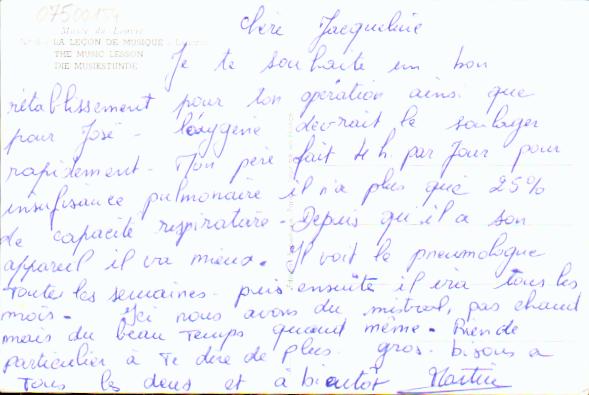 07500154
Chère Jacqueline
Musée du Louvre
LA LEÇON DE MUSIQUE
THE MUSIC LESSON
DIE MUSIKSTUNDE
Je te souhaite un bon
rétablissement pour ton opération ainsi que
pour José - l'oxygène devrait le soulager
rapidement - Mon père fait 4h par Jour pour
insufisance pulmonaire il n'a plus que 25%
de capacité respiratoire - Depuis qu'il a son
appareil il va mieux. Il voit le pneumologue
toutes les semaines - puis ensuite il ira tous les
mois - Ici nous avons du mistral, pas chaud
mais du beau temps quand même - Rien de
particulier à Te dire de plus. gros bisous a
Tous les deux et à bientôt